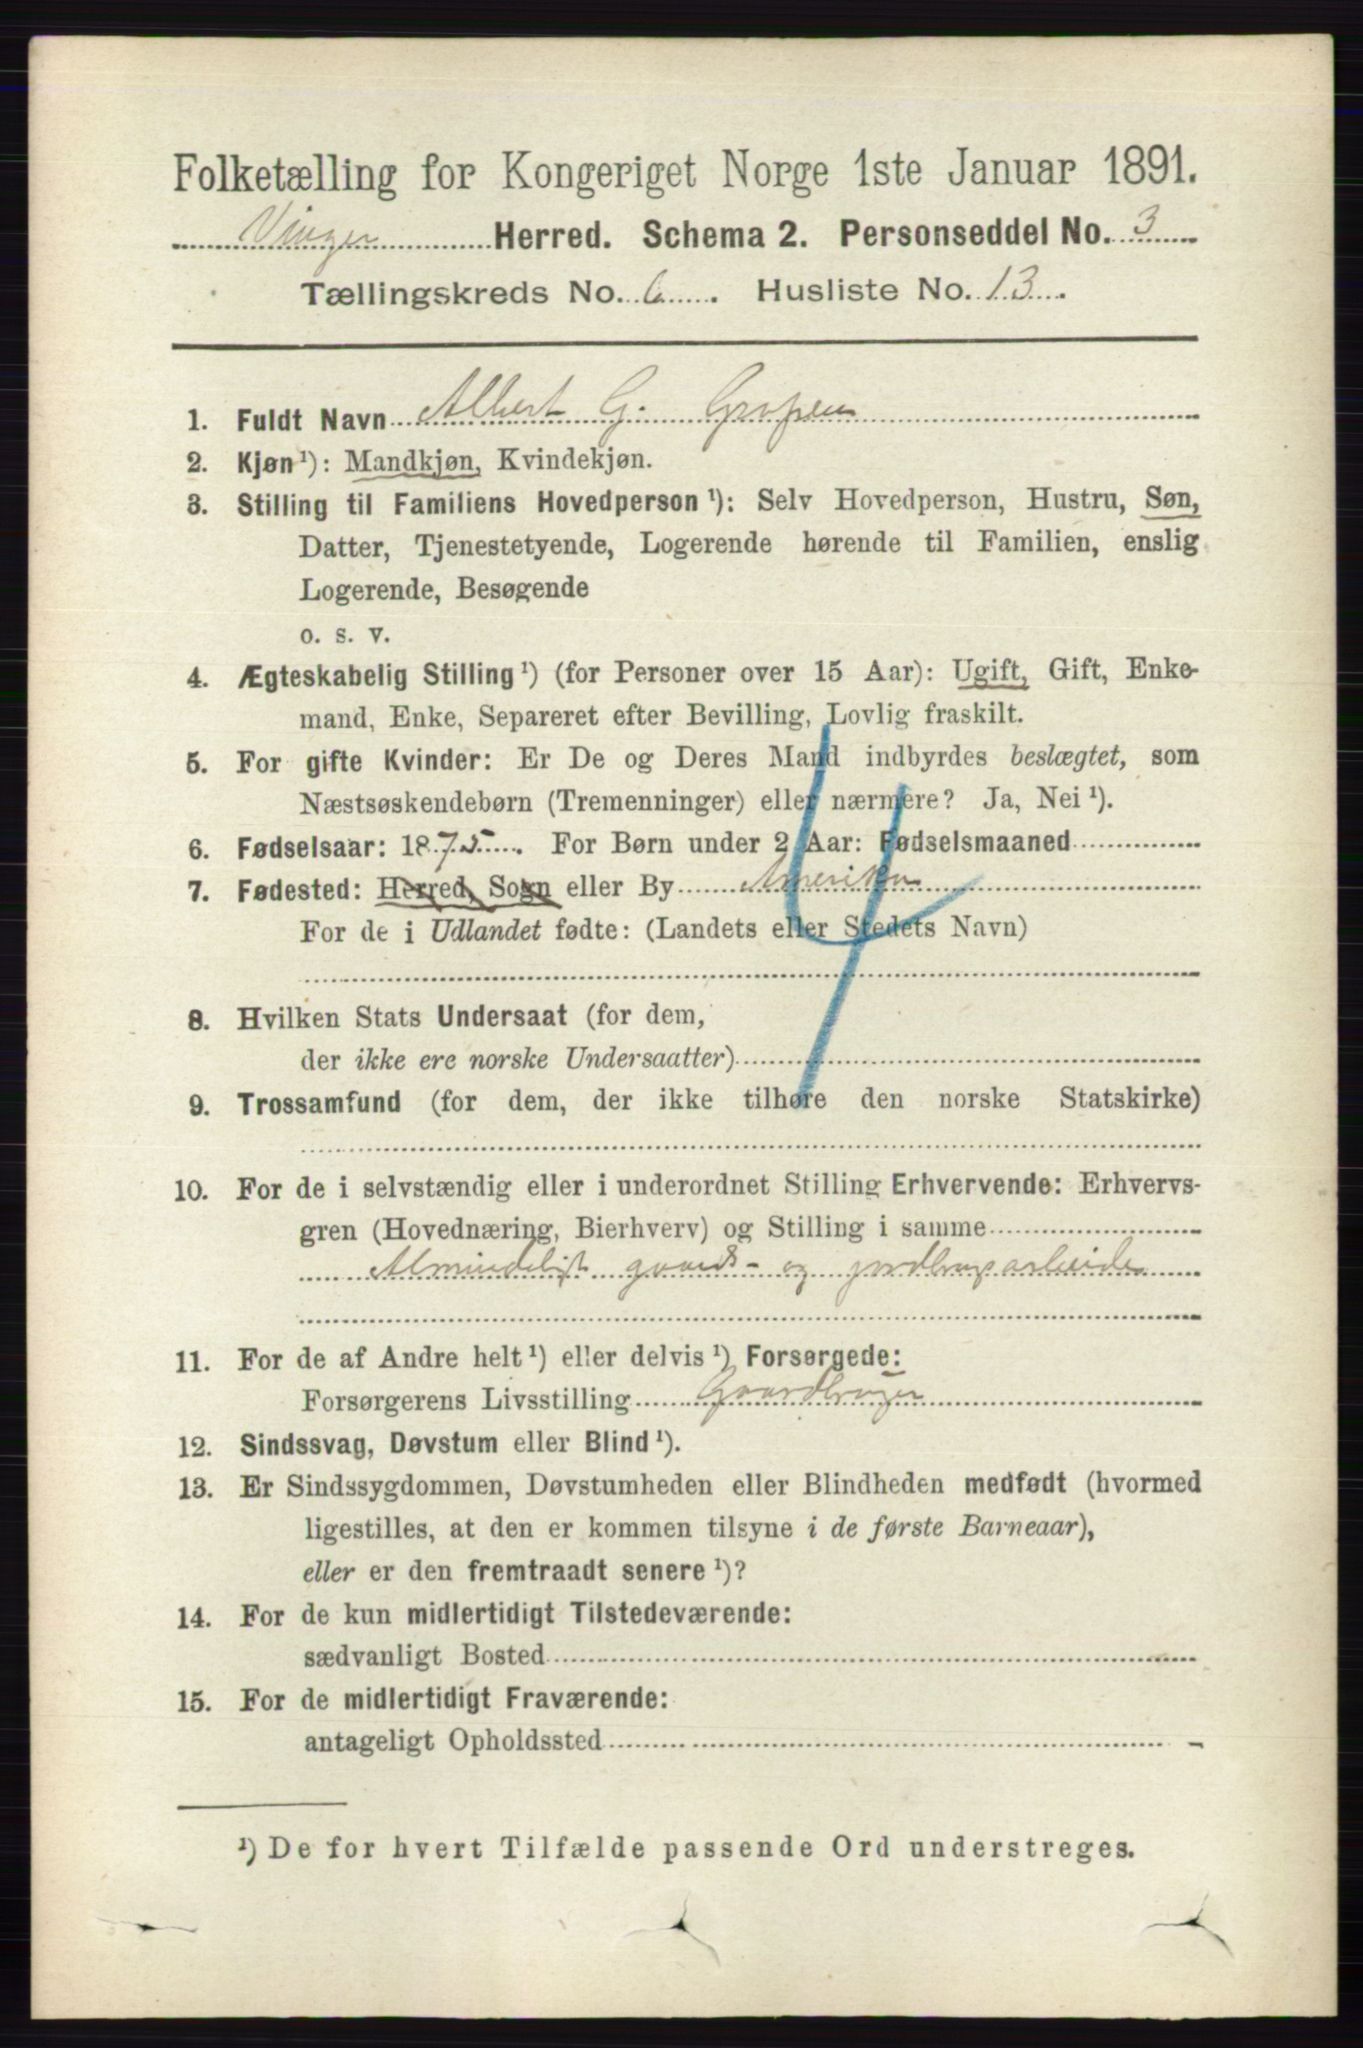 Folketælling for Kongeriget Norge 1ste Januar 1891.
Vinger Herred. Schema 2. Personseddel No. 3
Tællingskreds No. 6. Husliste No. 13.
1. Fuldt Navn Albert G. Gropen
2. Kjøn ¹): Mandkjøn, Kvindekjøn.
3. Stilling til Familiens Hovedperson ¹): Selv Hovedperson, Hustru, Søn,
Datter, Tjenestetyende, Logerende hørende til Familien, enslig
Logerende, Besøgende
o. s. v.
4. Ægteskabelig Stilling ¹) (for Personer over 15 Aar): Ugift, Gift, Enke-
mand, Enke, Separeret efter Bevilling, Lovlig fraskilt.
5. For gifte Kvinder: Er De og Deres Mand indbyrdes beslægtet, som
Næstsøskendebørn (Tremenninger) eller nærmere? Ja, Nei ¹).
6. Fødselsaar: 1875. For Børn under 2 Aar: Fødselsmaaned
7. Fødested: Herred, Sogn eller By Amerika
For de i Udlandet fødte: (Landets eller Stedets Navn)
4
8. Hvilken Stats Undersaat (for dem,
der ikke ere norske Undersaatter)
9. Trossamfund (for dem, der ikke tilhøre den norske Statskirke)
10. For de i selvstændig eller i underordnet Stilling Erhvervende: Erhvervs-
gren (Hovednæring, Bierhverv) og Stilling i samme
Almindeligt gaards- og jordbrugsarbeide
11. For de af Andre helt ¹) eller delvis ¹) Forsørgede:
Forsørgerens Livsstilling Gaardbruger
12. Sindssvag, Døvstum eller Blind ¹).
13. Er Sindssygdommen, Døvstumheden eller Blindheden medfødt (hvormed
ligestilles, at den er kommen tilsyne i de første Barneaar),
eller er den fremtraadt senere ¹)?
14. For de kun midlertidigt Tilstedeværende:
sædvanligt Bosted
15. For de midlertidigt Fraværende:
antageligt Opholdssted
¹) De for hvert Tilfælde passende Ord understreges.